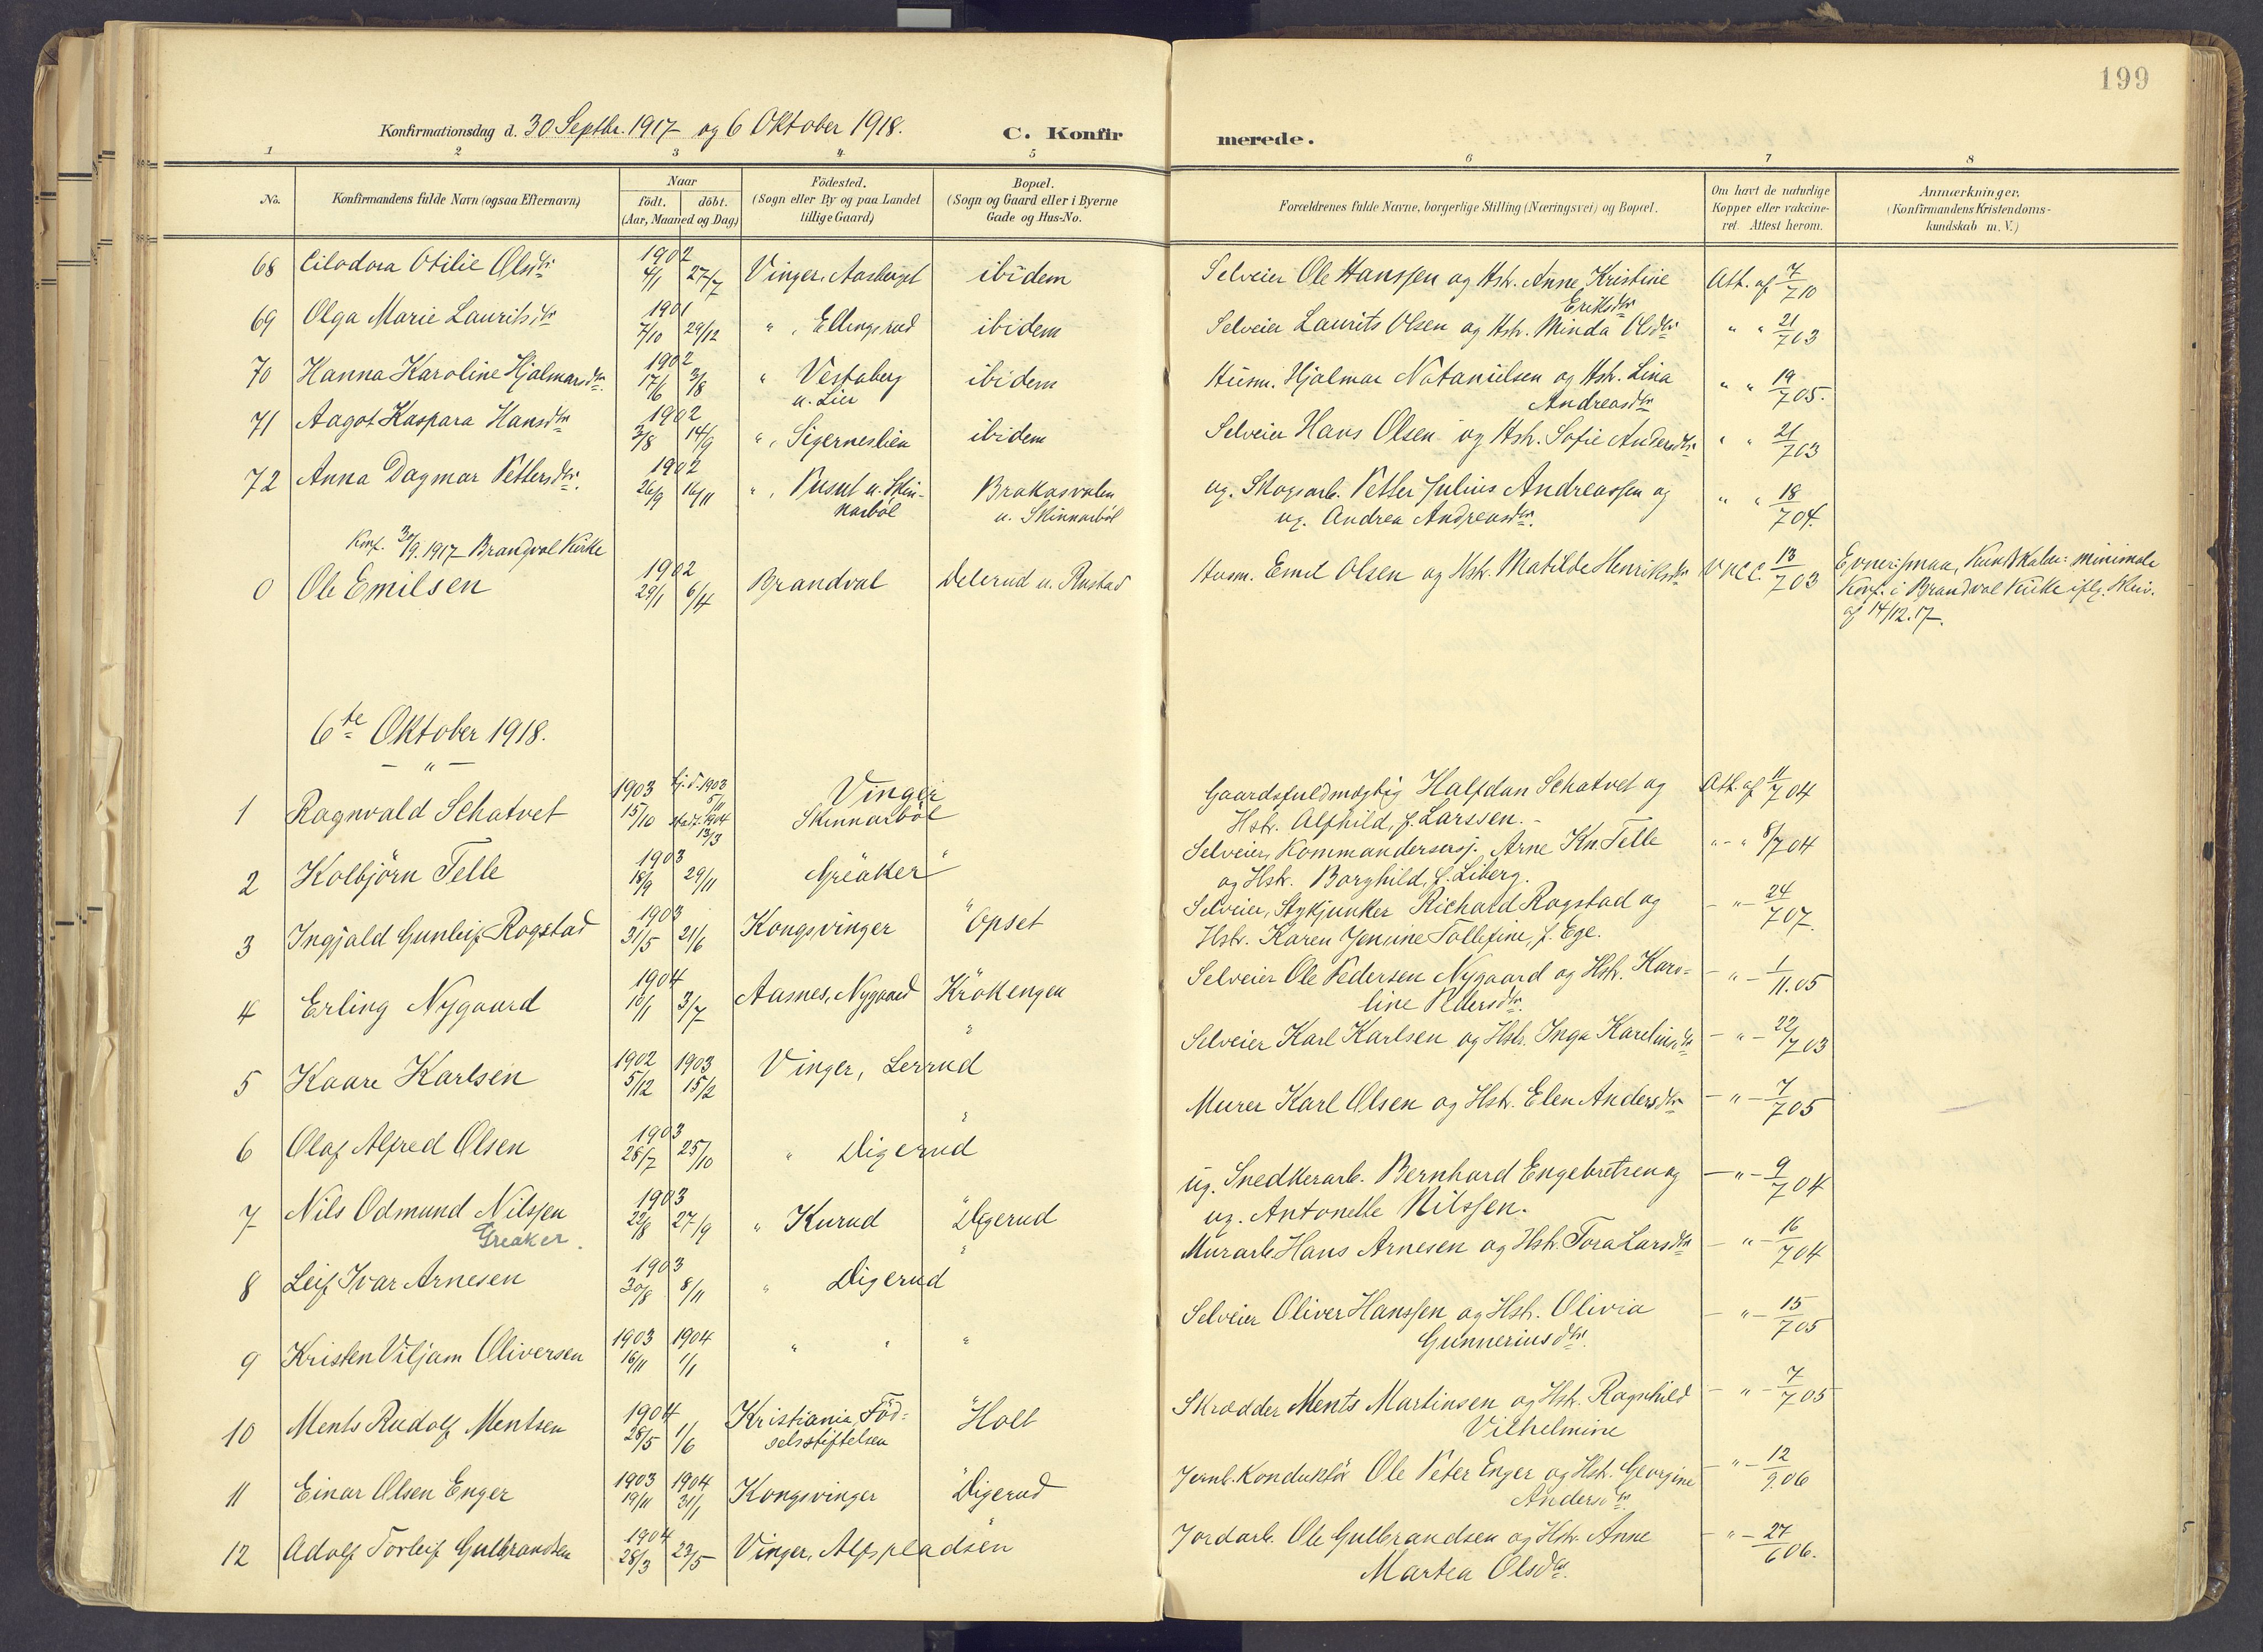 199
Konfirmationsdag d. 30 Septbr. 1917 og 6 Oktober 1918.
C. Konfirmerede.
1 2 3 4 5 6 7 8
No.
Konfirmandens fulde Navn (ogsaa Efternavn)
Naar
födt. döbt.
(Aar, Maaned og Dag)
Födested.
(Sogn eller By og paa Landet
tillige Gaard)
Bopæl.
(Sogn og Gaard eller i Byerne
Gade og Hus-No.
Forældrenes fulde Navne, borgerlige Stilling (Næringsvei) og Bopæl.
Om havt de naturlige
Kopper eller vakcine-
ret. Attest herom.
Anmærkninger.
(Konfirmandens Kristendoms-
kundskab m. V.)
68 Otilie Olsdtr. 1902 4/1 27/7 Vinger, Aasberget ibidem Selveier Ole Hanssen og Hstr. Anne Kristine Eriksdtr. Att. af 7/7 10
69 Olga Marie Lauritsdtr 1901 7/10 29/12 " , Ellingsrud ibidem Selveier Laurits Olsen og Hstr. Minda Olsdtr. " " 21/7 03
70 Hanna Karoline Hjalmarsdtr. 1902 17/6 3/8 " Vestaberg u. Lier ibidem Husm. Hjalmar Natanielsen og Hstr. Lina Andreasdtr " " 19/7 05.
71 Aagot Kaspara Hansdtr 1902 3/8 14/9 " , Sigerneslien ibidem Selveier Hans Olsen og Hstr. Sofie Andersdtr. " " 21/7 03
72 Anna Dagmar Pettersdtr. 1902 26/9 16/11 " , u. Skinnarböl u. Skinnarböl ug. Skogsarb. Petter Julius Andreassen og ug. Andrea Andreasdtr. " " 18/7 04.
Konf. 30/9. 1917 Brandval Kirke
0 Ole Emilsen 1902 29/1 6/4 Brandval u. Rustad Husm. Emil Olsen og Hstr. Matilde Henriksdtr Vacc. 13/7 03 Evner: smaa, Kundskaber: minimale
Konf. i Brandval Kirke iflg. Skriv.
af 14/12. 17.
6te Oktober 1918.
— " —
1 Ragnvald Schatvet 1903 15/10 hj. d. 1903 5/11 stadf. 1904 13/3 Vinger Skinnarböl Gaardsfuldmægtig Halfdan Schatvet og Hstr. Alfhild, f. Larssen. - Att. af 11/7 04
2 Kolbjörn Telle 1903 18/9 29/11 Greaker " Selveier, Kommandersersj. Arne Kn. Telle og Hstr. Borghild, f. Liberg. " - " 8/7 04
3 Ingjald Gunleif Rogstad 1903 31/5 21/6 Kongsvinger " Opset Selveier, Stykjunker Richard Rogstad og Hstr. Karen Jensine Tollefine, f. Ege. - " - 24/7 07.
4 Erling Nygaard 1904 10/1 3/7 Aasnes, Nygaard Krökengen Selveier Ole Pedersen Nygaard og Hstr. Karoline Pedersdtr. - " - 1/11. 05
5 Kaare Karlsen 1902 5/12 1903 15/2 Vinger, Lerrud " Selveier Karl Karlsen og Hstr. Inga Karelinsdtr - " - 22/7 03
6 Olaf Alfred Olsen 1903 28/7 25/10 " Digerud " Murer Karl Olsen og Hstr. Elen Andersdtr - " - 7/7 05
7 Nils Odmund Nilssen Greaker. 1903 22/8 27/9 " Kurud " Digerud ug. Snedkerarb. Bernhard Engebretsen og ug. Antonette Nilssen. - " - 9/7 04
8 Leif Ivar Arnesen 1903 30/8 8/11 " Digerud " Murarb. Hans Arnesen og Hstr. Tora Larsdtr - " - 16/7 04
9 Kristen Viljam Oliversen 1903 16/11 1904 1/1 " " " Selveier Oliver Hanssen og Hstr. Olivia Gunneriusdtr. - " - 15/7 05
10 Ments Rudolf Mentsen 1904 28/5 1/6 Kristiania, Födselsstiftelsen " Holt Skrædder Ments Martinsen og Hstr. Ragnhild Vilhelmine - " - 7/7 05
11 Einar Olsen Enger 1903 19/11 1904 31/1 Kongsvinger " Digerud Jernb. Konduktör Ole Peter Enger og Hstr. Georgine Andersdtr. - " - 12/9. 06
12 Adolf Torleif Gulbrandsen 1904 28/3 23/5 Vinger, Alfspladsen " Jordarb. Ole Gulbrandsen og Hstr. Anne Martea Olsdtr. - " - 27/6 06.